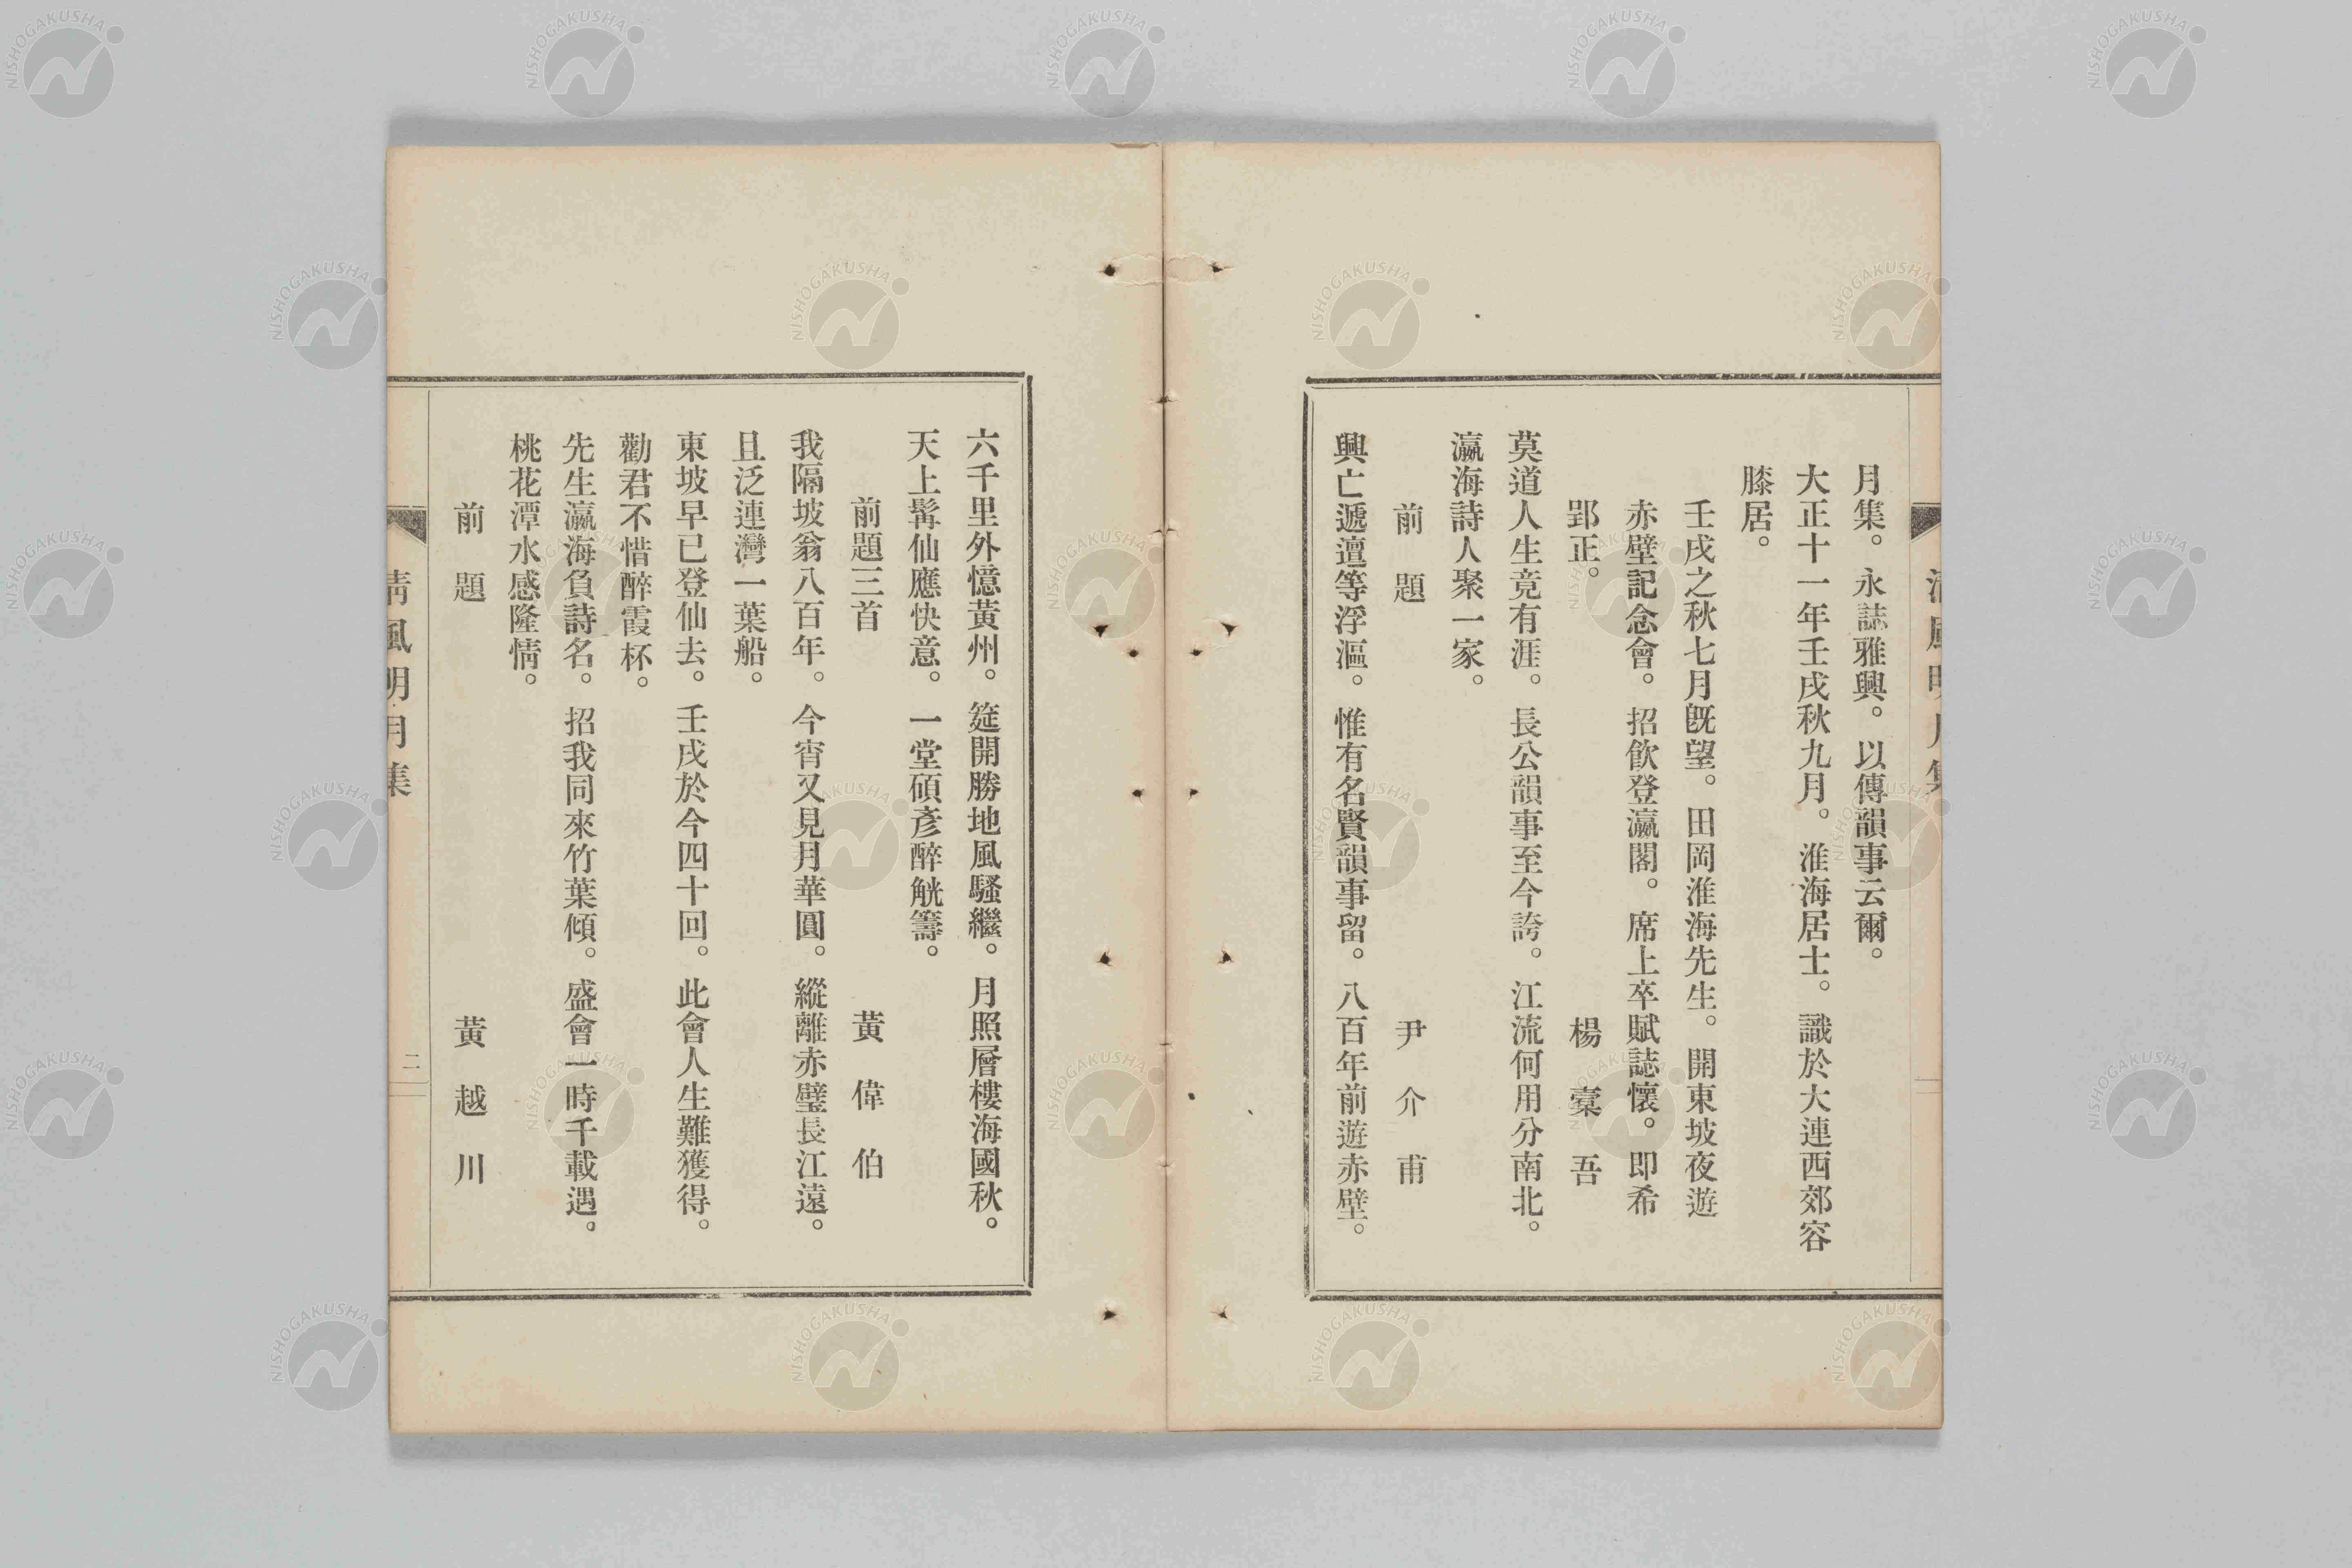 月集。永誌雅興。以傳韻事云爾。
大正十一年壬戌秋九月。淮海居士。識於大連西郊容
膝居。
壬戌之秋七月旣望。田岡淮海先生。開東坡夜遊
赤壁記念會。招飮登瀛閣。席上卒賦誌懷。即希
郢正。 楊橐吾
莫道人生竟有涯。長公韻事至今誇。江流何用分南北。
瀛海詩人聚一家。
前題 尹介甫
興亡遞邅等浮漚。惟有名賢韻事留。八百年前遊赤壁。
六千里外憶黃州。筵開勝地風騷繼。月照層樓海國秋。
天上髯仙應快意。一堂碩彥醉觥籌。
前題三首 黃偉伯
我隔坡翁八百年。今宵又見月華圓。縱離赤壁長江遠。
且泛連灣一葉船。
東坡早已登仙去。壬戌於今四十回。此會人生難獲得。
勸君不惜醉霞杯。
先生瀛海負詩名。招我同來竹葉傾。盛會一時千載遇。
桃花潭水感隆情。
前題 黃越川
清風明月集
二
NISHOGAKUSHA